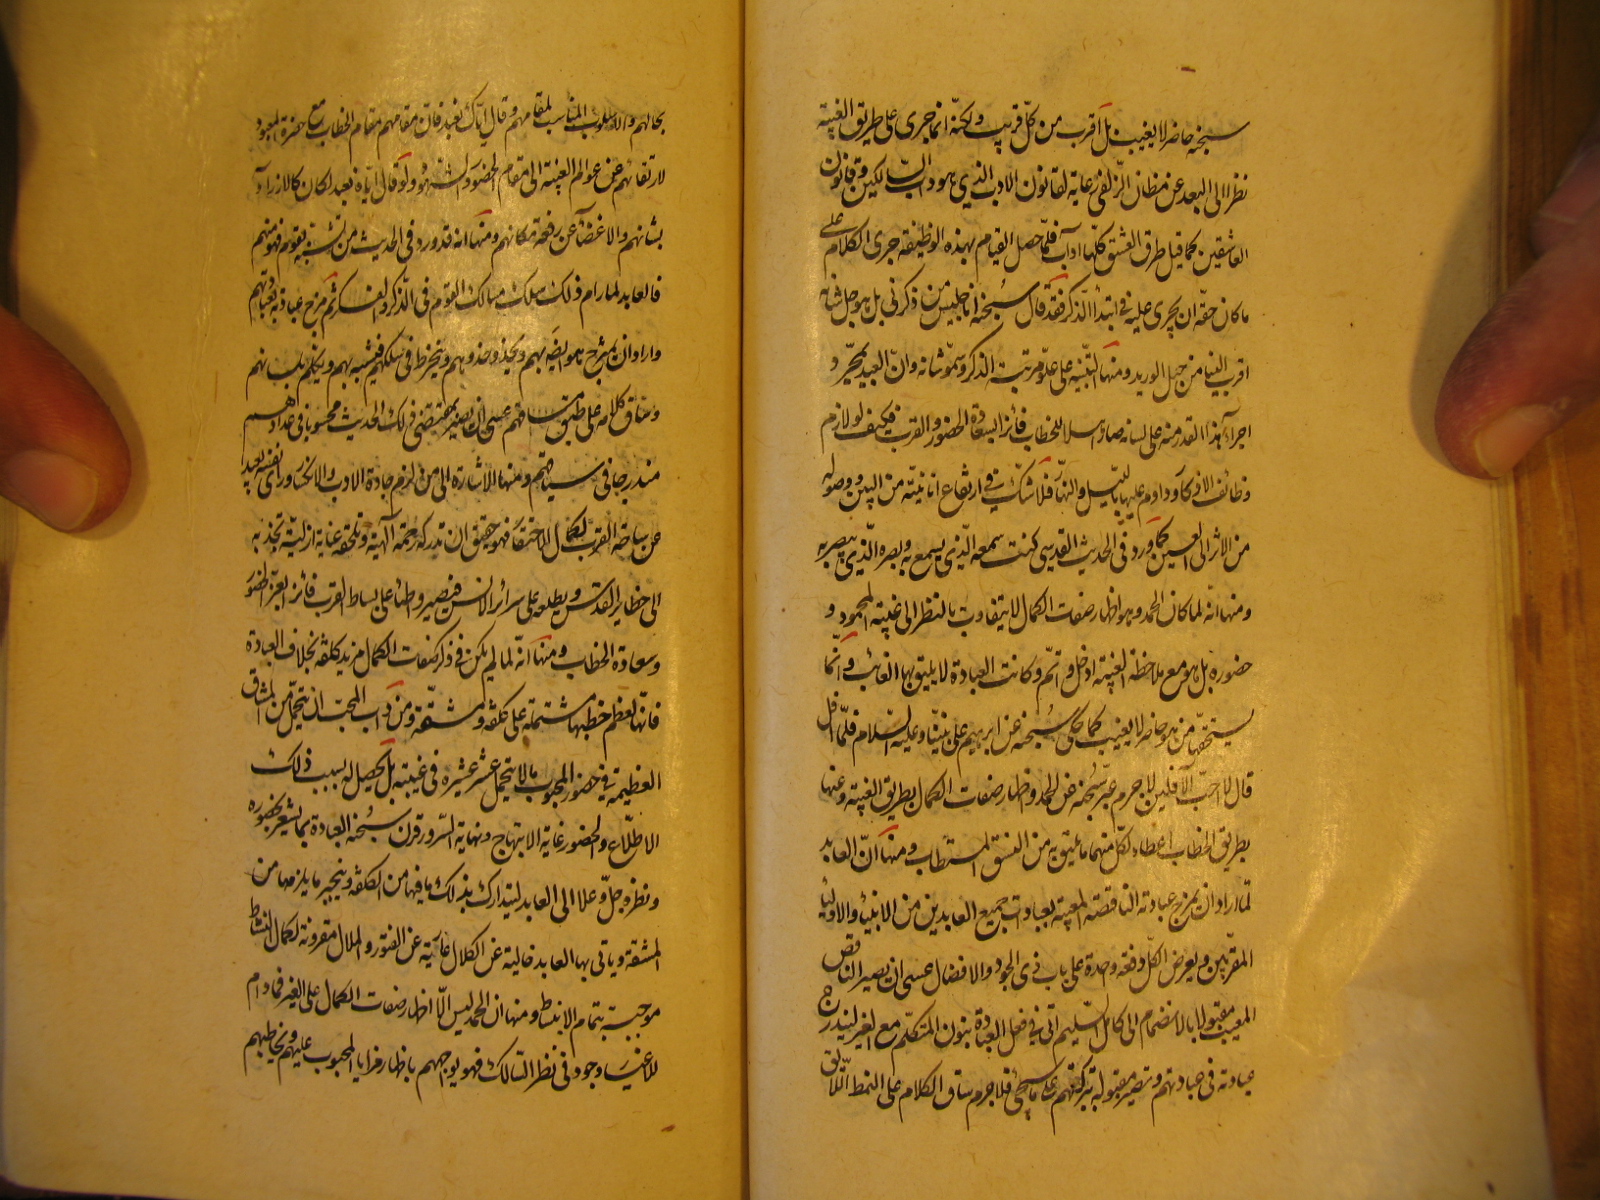 سبحنه حاضر لا يغيب بل اقرب من كل قريب ولكنه انما جرى على طريق الغيبة
نظرا الى البعد عن مظان الزلفى رعاية لقانون الادب الذي هو داب السالكين وقانون
العاشقين كما قيل طرق العشق كلها اداب فلما حصل القيام بهذه الوظيفة جرى الكلام على
ما كان حقه ان يجري عليه في ابتداء الذكر فقد قال سبحنه انا جليس من ذكرني بل هو جل شانه
اقرب الينا من حبل الوريد ومنها التنبيه على علو مرتبة الذكر وسمو شانه وان العبد بمجرد
اجراء هذا القدر منه على لسانه صار اهلا للخطاب فائزا بسعادة الحضور والقرب فكيف لو لازم
وظائف الاذكار وداوم عليها بالليل والنهار فلا شك في ارتفاع انانيته من البين ووصوله
من الاثر الى العين كما ورد في الحديث القدسي كنت سمعه الذي يسمع به وبصره الذي يبصر به
ومنها انه لما كان الحمد وهو اظهار صفات الكمال لا يتفاوت بالنظر الى غيبة المحمود و
حضوره بل هو مع ملاحظة الغيبة ادخل واتم وكانت العبادة لا يليق بها الغائب وانما
يستحقها من هو حاضر لا يغيب كما حكى سبحنه عن ابرهيم على نبينا وعليه السلام فلما افل
قال لا احب الآفلين لا جرم عبر سبحنه عن الحمد واظهار صفات الكمال بطريق الغيبة وعنها
بطريق الخطاب اعطاء لكل منهما ما يليق به من النسق المستطاب ومنها ان العابد
لما اراد ان يمزج عبادته الناقصة المعيبة بعبادت جميع العابدين من الانبياء والاولياء
المقربين ويعرض الكل دفعة واحدة على باب ذي الجود والافضال عسى ان يصير الناقص
المعيب مقبولا بالانضمام الى كامل السليم اتى في فعل العبادة بنون المتكلم مع الغير ليندرج
عبادته في عبادتهم وتصير مقبولة ببركتهم على ما سيجئ فلا جرم ساق الكلام على النمط اللائق
بحالهم والاسلوب المناسب لمقامهم وقال اياك نعبد فان مقامهم مقام الخطاب مع حضرة المعبود
لارتقائهم عن عوالم الغيبة الى مقام الحضور والشهود ولو قال اياه نعبد لكان كالازراء
بشانهم والاغضاء عن رفعة مكانهم ومنها انه قد ورد في الحديث من تشبه بقوم فهو منهم
فالعابد لما رام ذلك سلك مسالك القوم في الذكر والفكر ثم مزج عبادته بعبادتهم
واراد ان يمزج هو ايضا بهم ويحذو حذوهم وينخرط في سلكهم فيشبه بهم ويتكلم بلسانهم
وساق كلامه على طبق مساقهم عسى ان يصير بمقتضى ذلك الحديث محسوبا في عدادهم
مندرجا في سياقهم ومنها الاشارة الى من لزم جادة الادب والانكسار وراى نفسه بعيدا
عن ساحة القرب لكمال الاحتقار فهو حقيق ان تدركه رحمة آلهية وتلحقه عناية ازلية تجذبه
الى حظاير القدس ويطلعه على سرائر الانس فيصير واطئا على بساط القرب فائزا بعز الحضور
وسعادة الخطاب ومنها انه لما لم يكن في ذكر صفات الكمال مزيد كلفة بخلاف العبادة
فانها لعظم خطبها مشتملة على كلفة ومشقة ومن داب المحب ان يتحمل من المشاق
العظيمة في حضور المحبوب ما لا يتحمل عشر عشيره في غيبته بل يحصل له بسبب ذلك
الاطلاع والحضور غاية الابتهاج ونهاية السرور قرن سبحنه العبادة بما يشعر بحضوره
ونظره جل وعلا الى العابد ليتدارك بذلك ما فيها من الكلفة وينجبر ما يلزمها من
المشقة وياتي بها العابد خالية عن الكلال عارية عن الفتور والملال مقرونة بكمال النشاط
موجبة بتمام الانبساط ومنها ان الحمد ليس الا اظهار صفات الكمال على الغير فما دام
للاغيار وجود في نظر السالك فهو يواجههم باظهار مزايا المحبوب عليهم ويخاطبهم